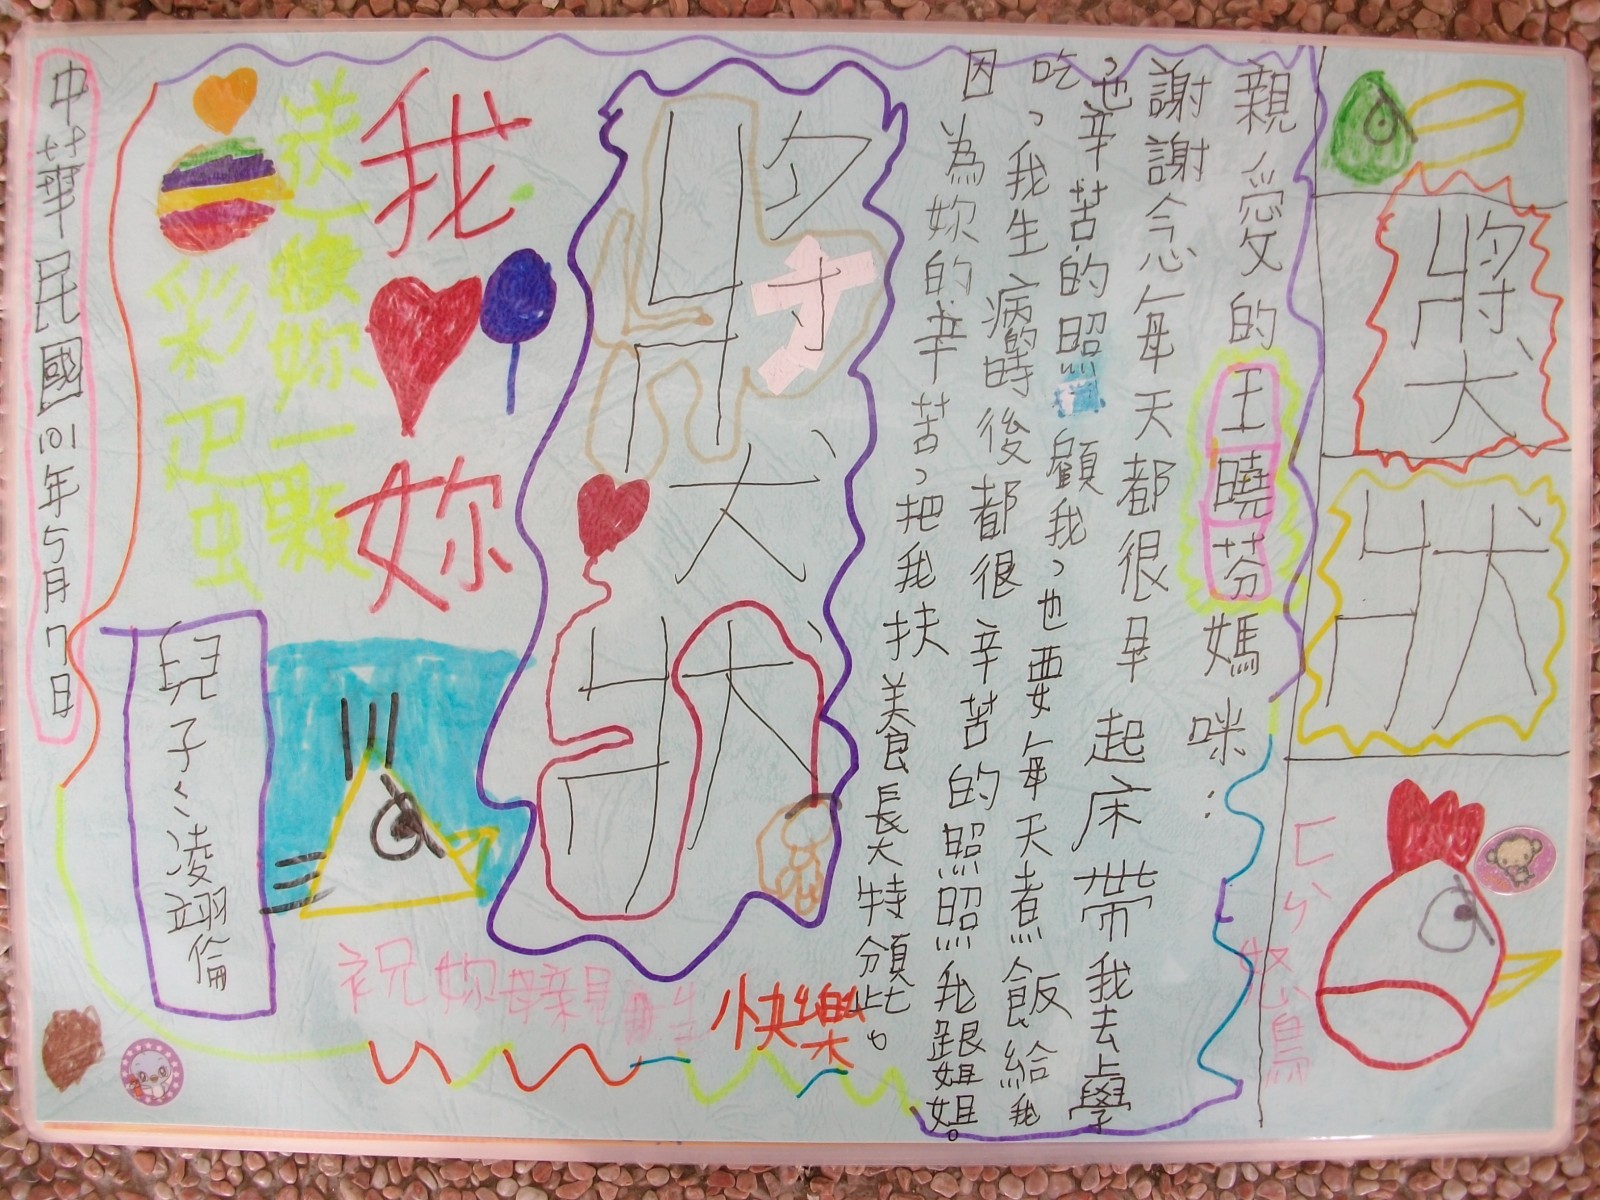 獎
狀
ㄈㄣ怒鳥
親愛的王曉芬媽咪：
謝謝念每天都很早起床帶我去上學
、也辛苦的照顧我、也要每天煮飯給我
吃、我生病的時後都很辛苦的照照我跟姐姐。
因為妳的辛苦、把我扶養長大特頒此。
獎狀
我妳
妳一顆
彩虫
祝妳母親快樂
兒子：凌翊倫
中華民國101年5月7日